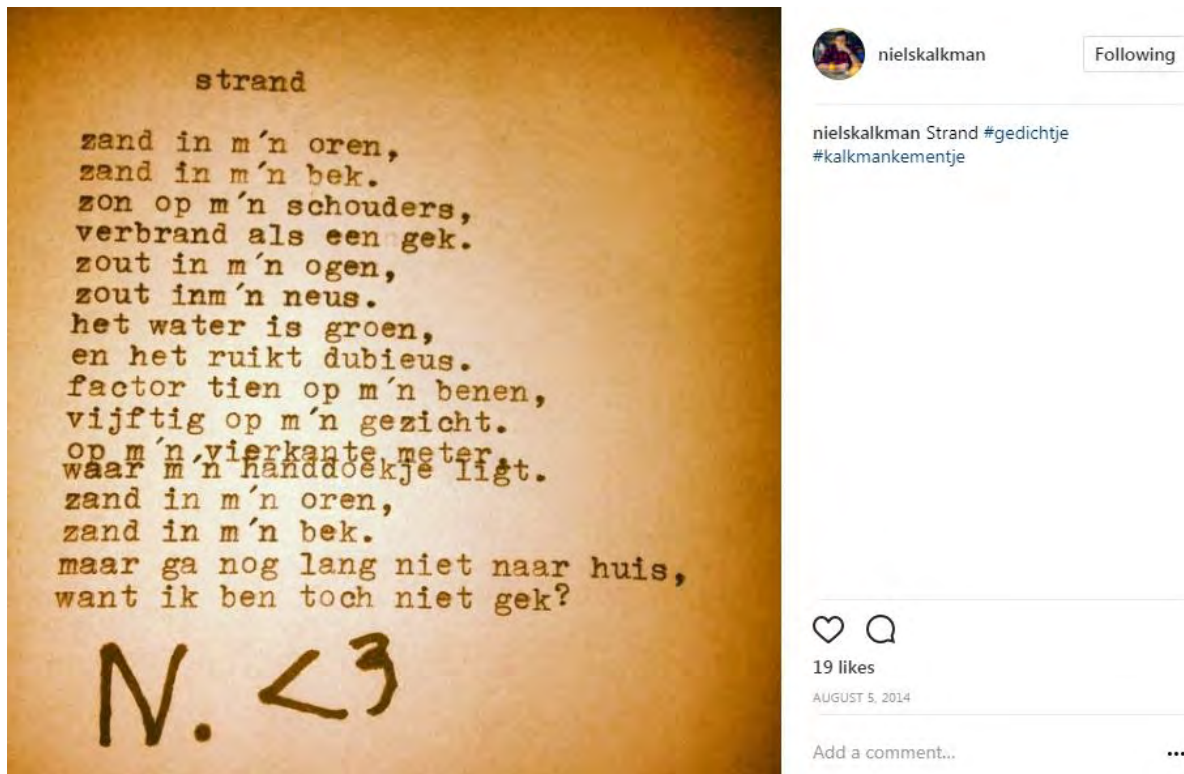 strand
zand in m´n oren,
zand in m´n bek.
zon op m´n schouders,
verbrand als een gek.
zout in m´n ogen,
zout inm´n neus.
het water is groen,
en het ruikt dubieus.
factor tien op m´n benen,
vijftig op m´n gezicht.
op m´n vierkante meter,
waar m´n handdoekje ligt.
zand in m´n oren,
zand in m´n bek.
maar ga nog lang niet naar huis,
want ik ben toch niet gek?
N. <3
nielskalkman
Following
nielskalkman Strand #gedichtje
#kalkmankementje
19 likes
AUGUST 5, 2014
Add a comment...